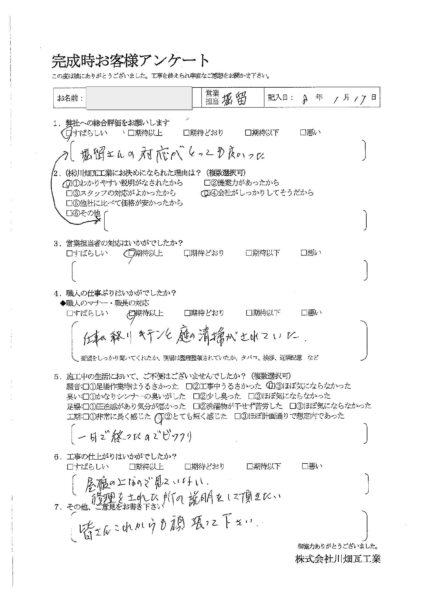 完成時お客様アンケート
この度は誠にありがとうございました。工事を終えられ率直なご感想をお聞かせ下さい。
お名前： 営業担当 塩留 記入日： 2 年 1 月 17 日
1. 弊社への総合評価をお願いします
□すばらしい □期待以上 □期待どおり □期待以下 □悪い
塩留さんの対応がとっても良かった
2. (株)川畑瓦工業にお決めになられた理由は？（複数選択可）
□①わかりやすい説明がなされたから □②提案力があったから
□③スタッフの対応がよかったから □④会社がしっかりしてそうだから
□⑤他社に比べて価格が安かったから
□⑥その他
3. 営業担当者の対応はいかがでしたか？
□すばらしい □期待以上 □期待どおり □期待以下 □悪い
4. 職人の仕事ぶりはいかがでしたか？
◆職人のマナー・職長の対応
□すばらしい □期待以上 □期待どおり □期待以下 □悪い
仕事の終り キチンと庭の清掃がされていた。
要望をしっかり聞いてくれたか、現場は整理整頓されていたか、タバコ、挨拶、近隣配慮 など
5. 施工中の生活において、ご不便はございませんでしたか？（複数選択可）
騒音:□①足場作業時はうるさかった □②工事中うるさかった □③ほぼ気にならなかった
臭い:□①かなりシンナーの臭いがした □②少し臭った □③ほぼ気にならなかった
足場:□①圧迫感があり気分が悪かった □②洗濯物が干せず苦労した □③ほぼ気にならなかった
工期:□①非常に長く感じた □②とても短く感じた □③ほぼ計画通りで想定内であった
一日で終ったのでビックリ
6. 工事の仕上がりはいかがでしたか？
□すばらしい □期待以上 □期待どおり □期待以下 □悪い
屋根の上なので見ていない。
修理をされた所の説明をして頂きたい
7. その他、ご意見をお書き下さい
皆さんこれからも頑張って下さい
御協力ありがとうございました。
株式会社川畑瓦工業